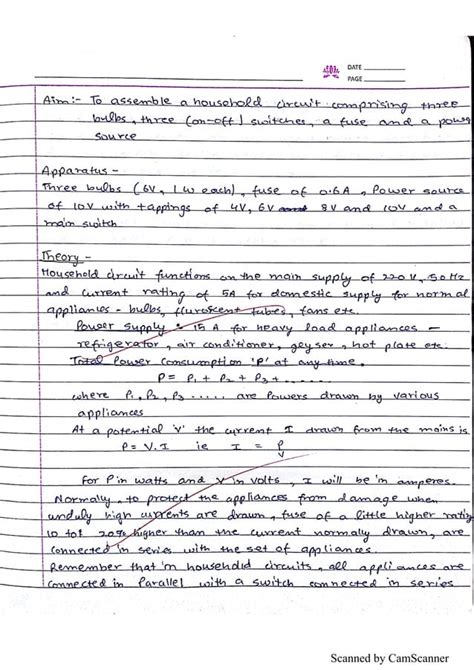 DATE
PAGE
Aim:- To assemble a household circuit comprising three
bulbs, three (on-off) switches, a fuse and a power
source
Apparatus -
Three bulbs (6V, 1W each), fuse of 0.6A, Power source
of 10V with tappings of 4V, 6V 8V and 10V and a
main switch
Theory -
Household circuit functions on the main supply of 220V, 50Hz
and current rating of 5A for domestic supply for normal
appliances - bulbs, fluroscent tubes, fans etc.
Power Supply : 15 A for heavy load appliances -
refrigerator, air conditioner, geyser, hot plate etc.
Total Power Consumption 'P' at any time.
P = P1 + P2 + P3 + ......
where P1, P2, P3 ..... are Powers drawn by various
appliances
At a potential 'V' the current I drawn from the mains is
P = V.I ie I = P/V
For P in watts and V in volts, I will be in amperes.
Normally, to protect the appliances from damage when
unduly high currents are drawn, fuse of a little higher rating
10 to 20% higher than the current normally drawn, are
connected in series with the set of appliances.
Remember that in household circuits, all appliances are
connected in Parallel with a switch connected in series
Scanned by CamScanner